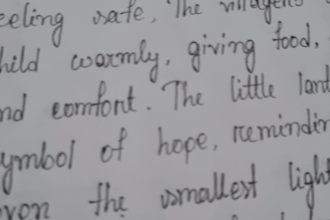 eeling safe. The villagers
hild warmly, giving food,
nd comfort. The little lant
ymbol of hope, remindin
ven the smallest light